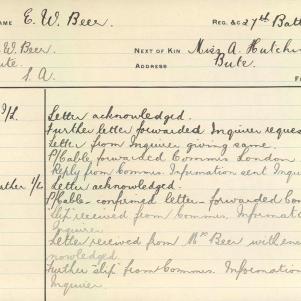 NAME E. W. Beer REG. &C 27th Batt
W. Beer NEXT OF KIN Miss A. Hutchi
Bute. ADDRESS Bute.
S. A.
Letter acknowledged.
Further letter forwarded Inquirer reques
Letter from Inquirer giving same.
P/Cable forwarded Commis London
Reply from Commis. Information sent Inqui
Letter acknowledged.
P/Cable confirmed letter forwarded Com
Slip received from Commis. Informat
Inquirer.
Letter received from Mrs Beer with enc
nowledged.
Further slip from Commis. Information
Inquirer.